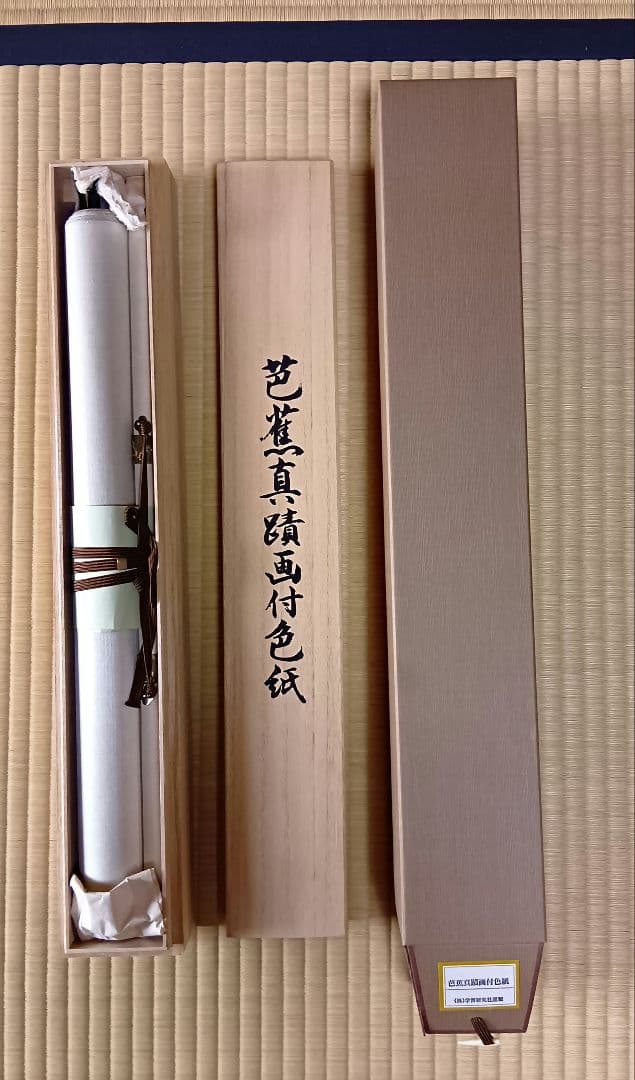 芭蕉真蹟画付色紙
芭蕉真蹟画付色紙
(株)学習研究社謹製